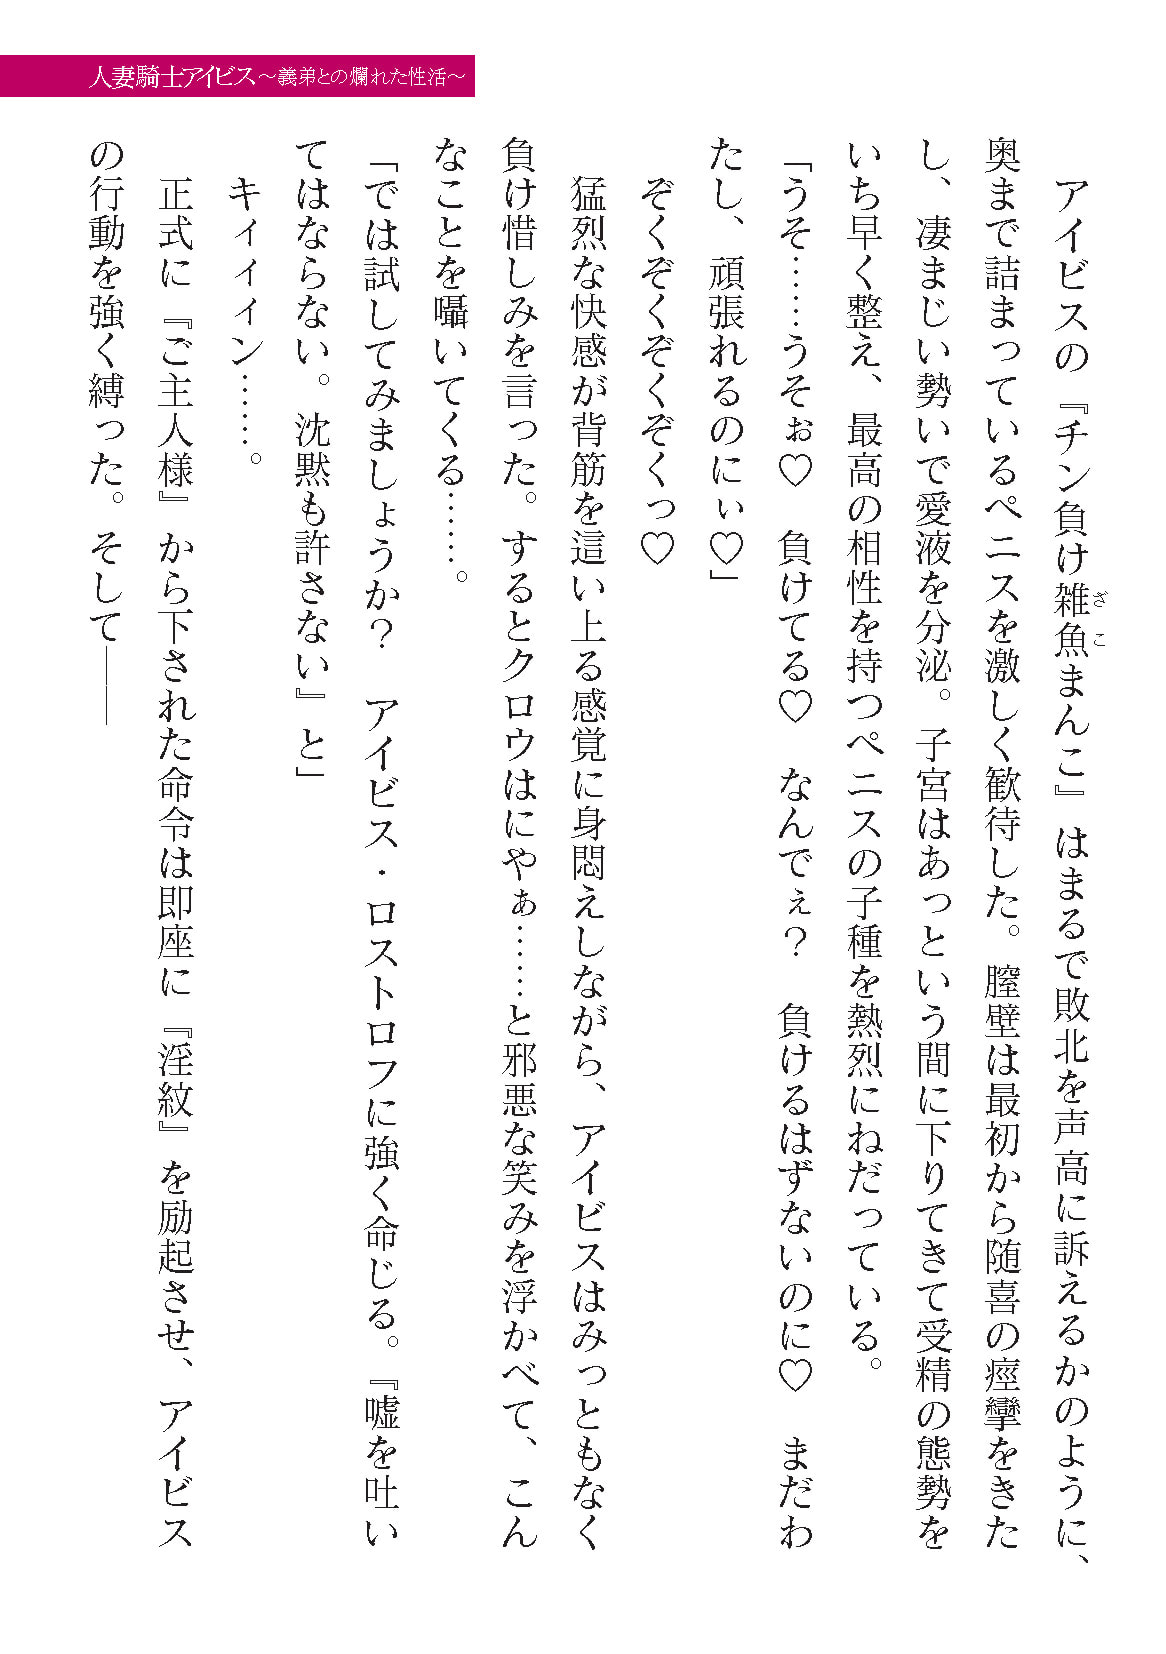 人妻騎士アイビス～義弟との爛れた性活～
アイビスの『チン負け雑魚まんこ』はまるで敗北を声高に訴えるかのように、
ざこ
奥まで詰まっているペニスを激しく歓待した。膣壁は最初から随喜の痙攣をきた
し、凄まじい勢いで愛液を分泌。子宮はあっという間に下りてきて受精の態勢を
いち早く整え、最高の相性を持つペニスの子種を熱烈にねだっている。
「うそ……うそぉ♡　負けてる♡　なんでぇ？　負けるはずないのに♡　まだわ
たし、頑張れるのにぃ♡」
ぞくぞくぞくぞくっ♡
猛烈な快感が背筋を這い上る感覚に身悶えしながら、アイビスはみっともなく
負け惜しみを言った。するとクロウはにやぁ……と邪悪な笑みを浮かべて、こん
なことを囁いてくる……。
「では試してみましょうか？　アイビス・ロストロフに強く命じる。『嘘を吐い
てはならない。沈黙も許さない』と」
キィィィン……。
正式に『ご主人様』から下された命令は即座に『淫紋』を励起させ、アイビス
の行動を強く縛った。そして――